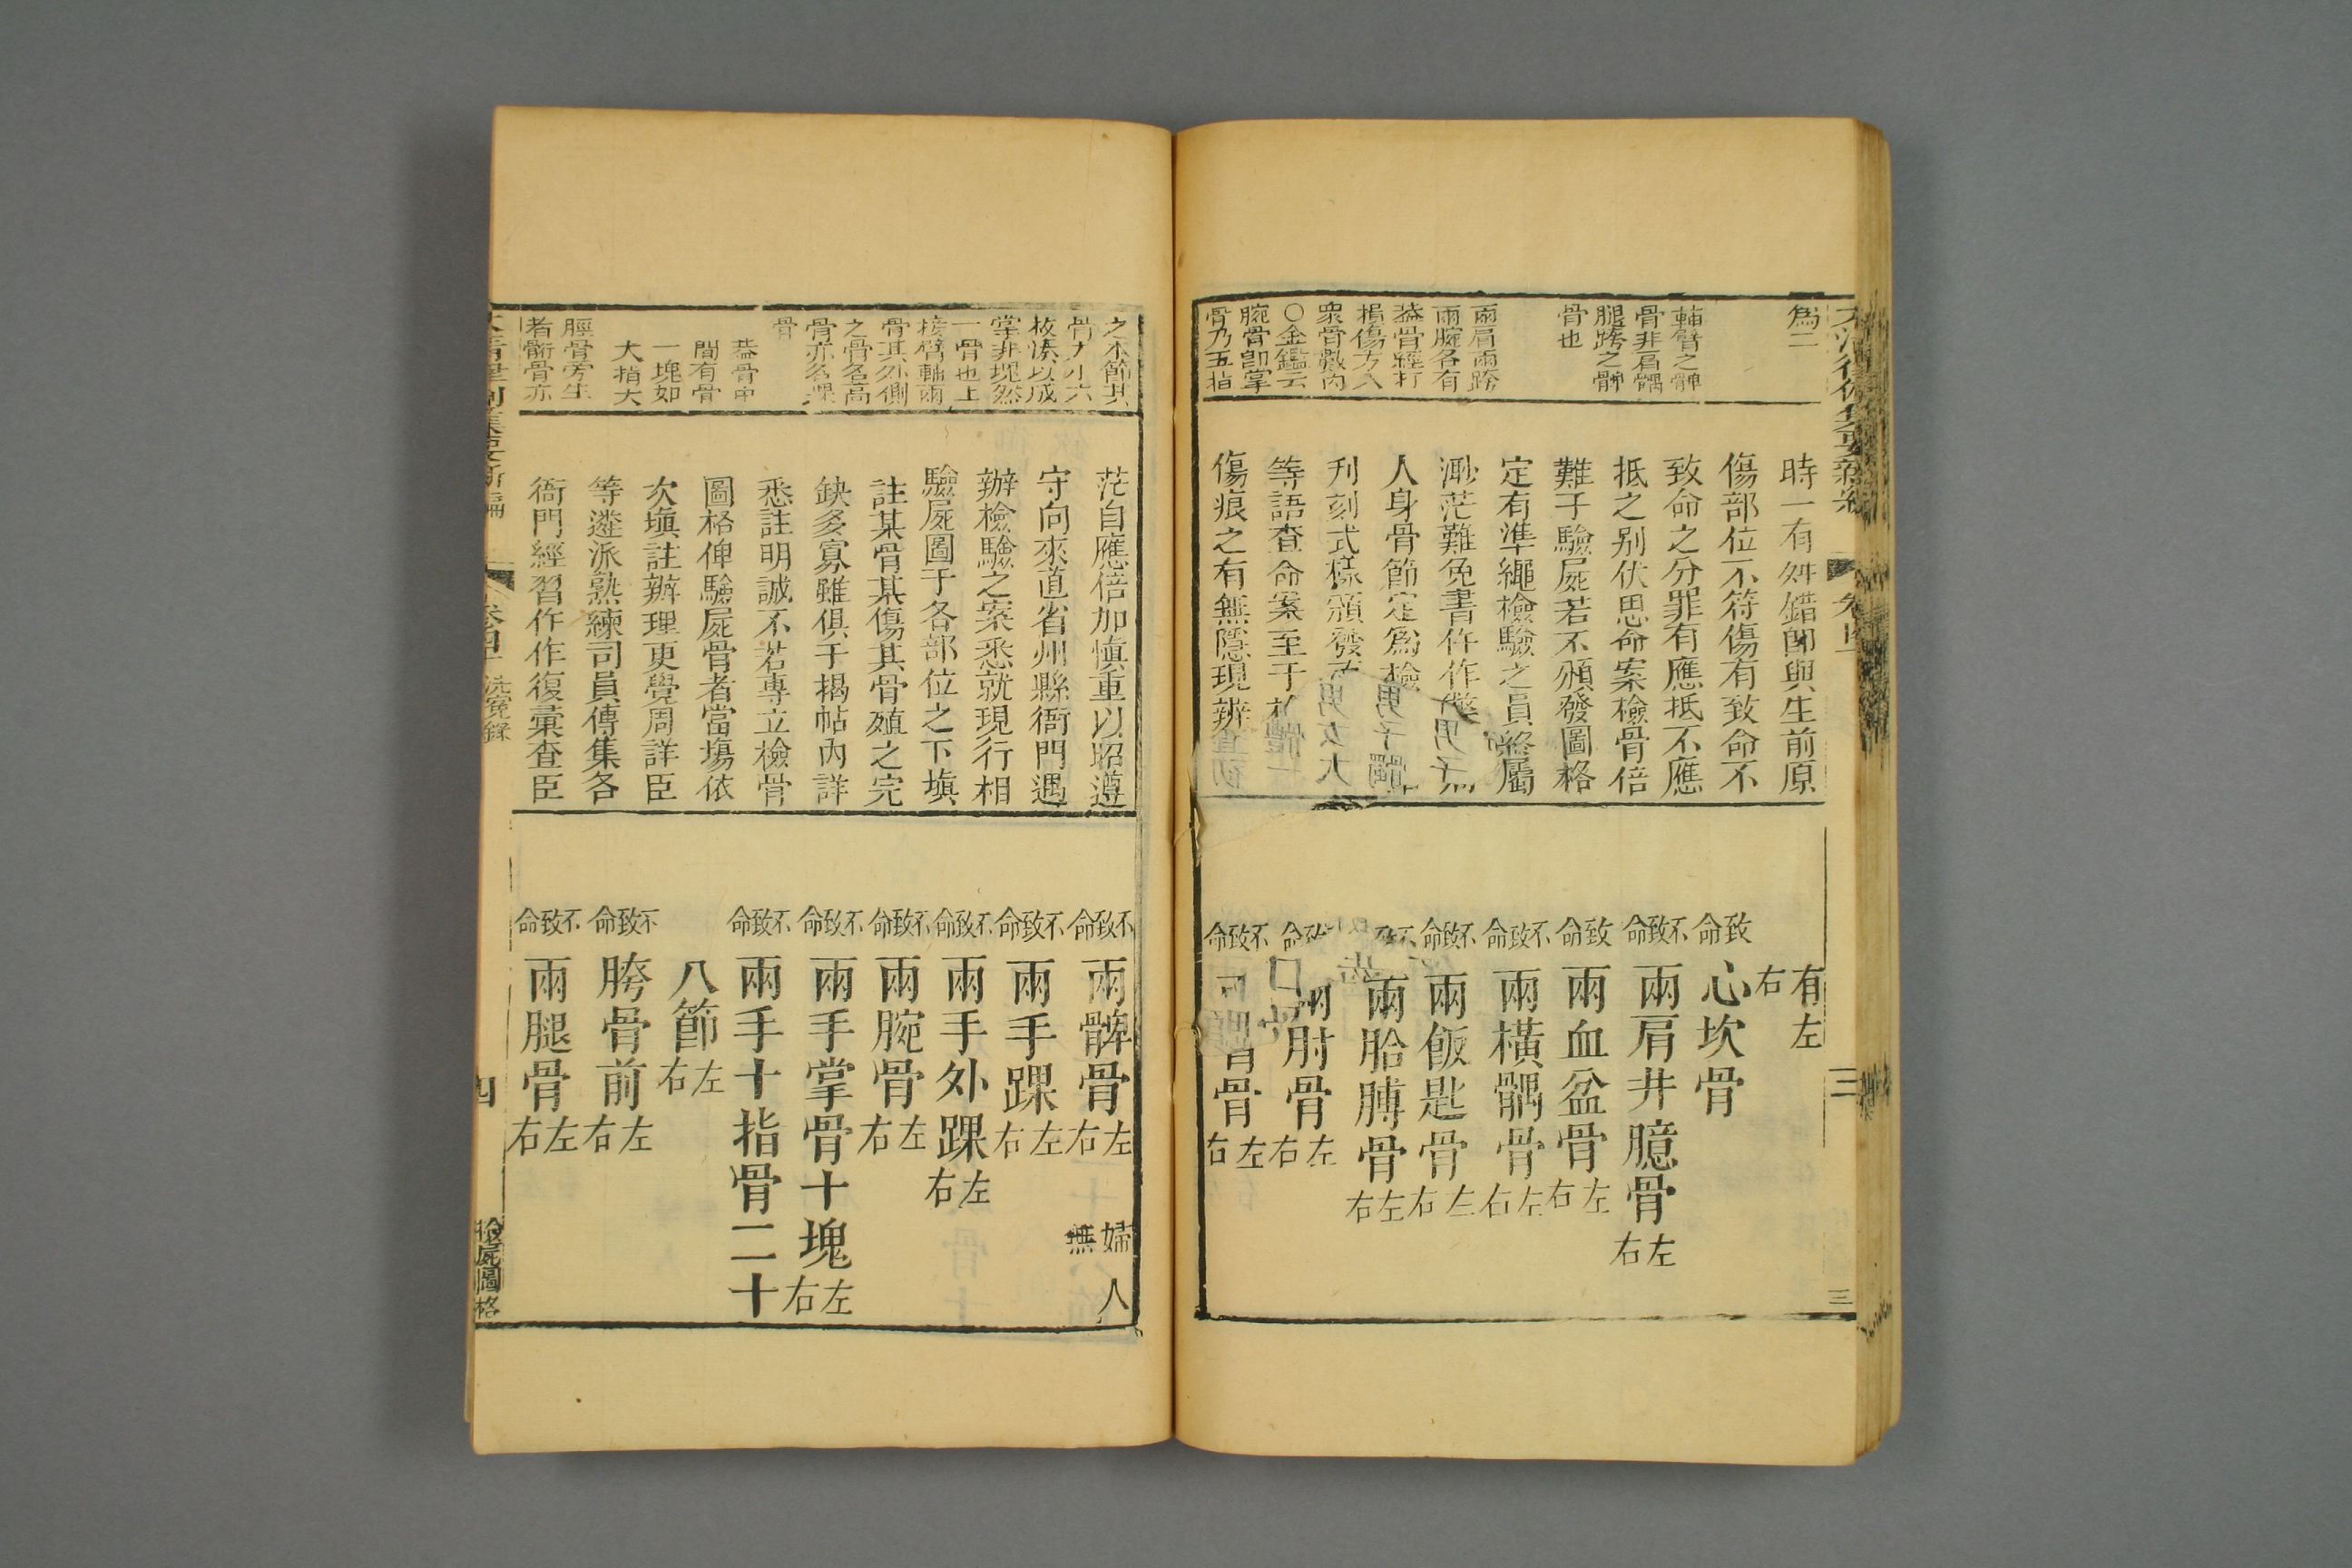 為二
輔臂之髀
骨非肩髃
腿胯之髀
骨也
兩肩兩胯
兩腕各有
葢骨經打
損傷方入
衆骨數內
〇金鑑云
腕骨卽掌
骨乃五指
時一有舛錯卽與生前原
傷部位不符傷有致命不
致命之分罪有應抵不應
抵之别伏思命案檢骨倍
難于驗屍若不頒發圖格
定有準繩檢驗之員終屬
渺茫難免書仵作
人身骨節定為檢
刋刻式樣頒發
等語查命案至于
傷痕之有無隱現辨
有左
右
致命 心坎骨
不致命 兩肩井臆骨左右
致命 兩血盆骨左右
不致命 兩橫髃骨左右
不致命 兩飯匙骨左右
兩胎膊骨左右
肘骨左右
不致命 骨左右
三
之本節其
骨大小六
枚湊以成
掌非塊然
一骨也上
接臂輔兩
骨其外側
之骨名高
骨亦名踝
骨
葢骨中
間有骨
一塊如
大指大
脛骨旁生
者䯒骨亦
茫自應倍加愼重以昭遵
守向來直省州縣衙門遇
辦檢驗之案悉就現行相
驗屍圖于各部位之下塡
註某骨某傷其骨殖之完
缺多寡雖俱于揭帖內詳
悉註明誠不若專立檢骨
圖格俾驗屍骨者當塲依
次塡註辦理更覺周詳臣
等遴派熟練司員傳集各
衙門經習仵作復彚查臣
不致命 兩髀骨左右 婦人無
不致命 兩手踝左右
不致命 兩手外踝左右
不致命 兩腕骨左右
不致命 兩手掌骨十塊左右
不致命 兩手十指骨二十
八節左右
不致命 胯骨前左右
不致命 兩腿骨左右
大清律例集要新編 卷四十 洗寃錄 四 檢屍圖格